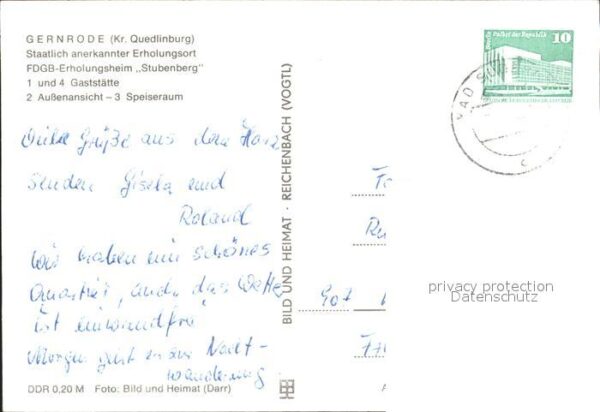 GERNRODE (Kr. Quedlinburg)
Staatlich anerkannter Erholungsort
FDGB-Erholungsheim „Stubenberg"
1 und 4 Gaststätte
2 Außenansicht – 3 Speiseraum
Viele Grüße aus dem Harz
senden Gisela und
Roland
Wir haben ein schönes
Quartier, auch das Wetter
ist einwandfrei
Morgen geht es zur Nacht-
wanderung.
DDR 0,20 M Foto: Bild und Heimat (Darr)
BILD UND HEIMAT · REICHENBACH (VOGTL)
Berlin Palast der Republik
10
privacy protection
Datenschutz